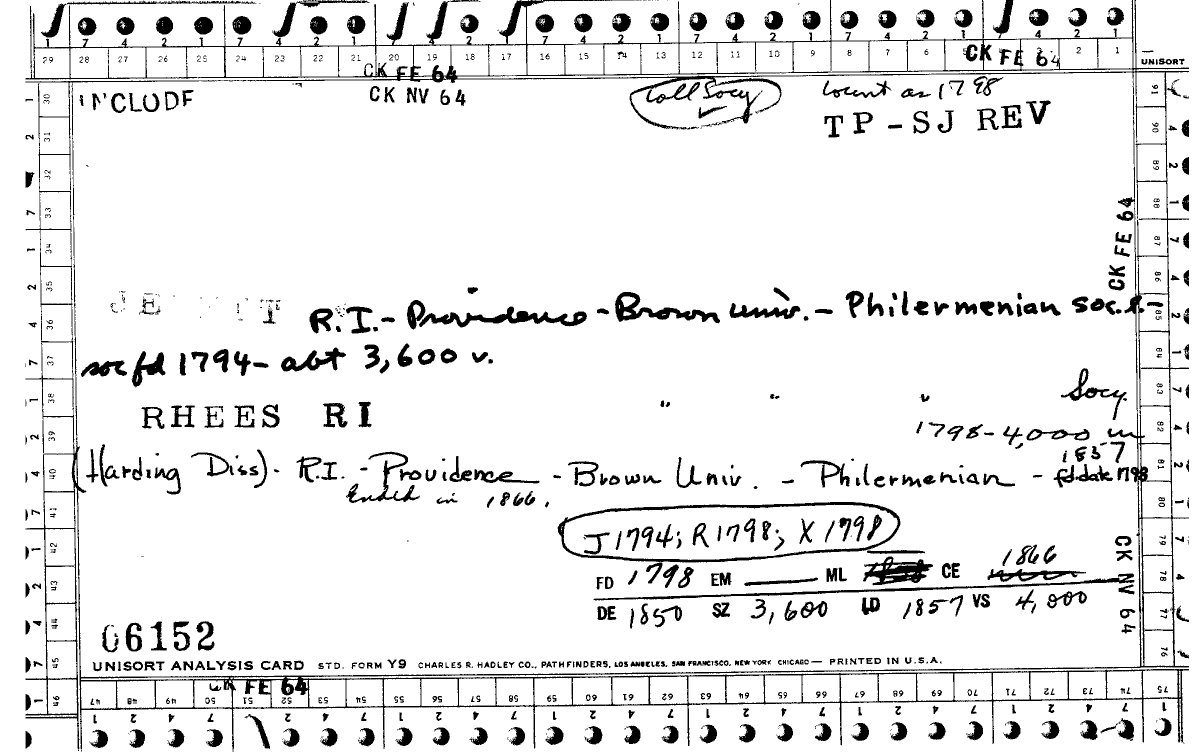 29 28 27 26 25 24 23 22 21 20 19 18 17 16 15 14 13 12 11 10 9 8 7 6 2 1
UNISORT
CK FE 64
CK FE 64
INCLUDE
CK NV 64
Coll Socy
count as 1798
TP-SJ REV
CK FE 64
R.I.- Providence - Brown Univ. - Philermenian soc. l.-
soc fd 1794- abt 3,600 v.
RHEES RI " " " Socy.
1798-4,000 in
1857
(Harding Diss)- R.I. - Providence - Brown Univ. - Philermenian - fd date 1798
Ended in 1866.
J1794; R1798; X 1798
FD 1798 EM ML CE 1866
DE 1850 SZ 3,600 LD 1857 VS 4,000
CK NV 64
06152
UNISORT ANALYSIS CARD STD. FORM Y9 CHARLES R. HADLEY CO., PATHFINDERS, LOS ANGELES, SAN FRANCISCO, NEW YORK CHICAGO — PRINTED IN U.S.A.
CK FE 64
47 48 49 50 51 52 53 54 55 56 57 58 59 60 61 62 63 64 65 66 67 68 69 70 71 72 73 74 75